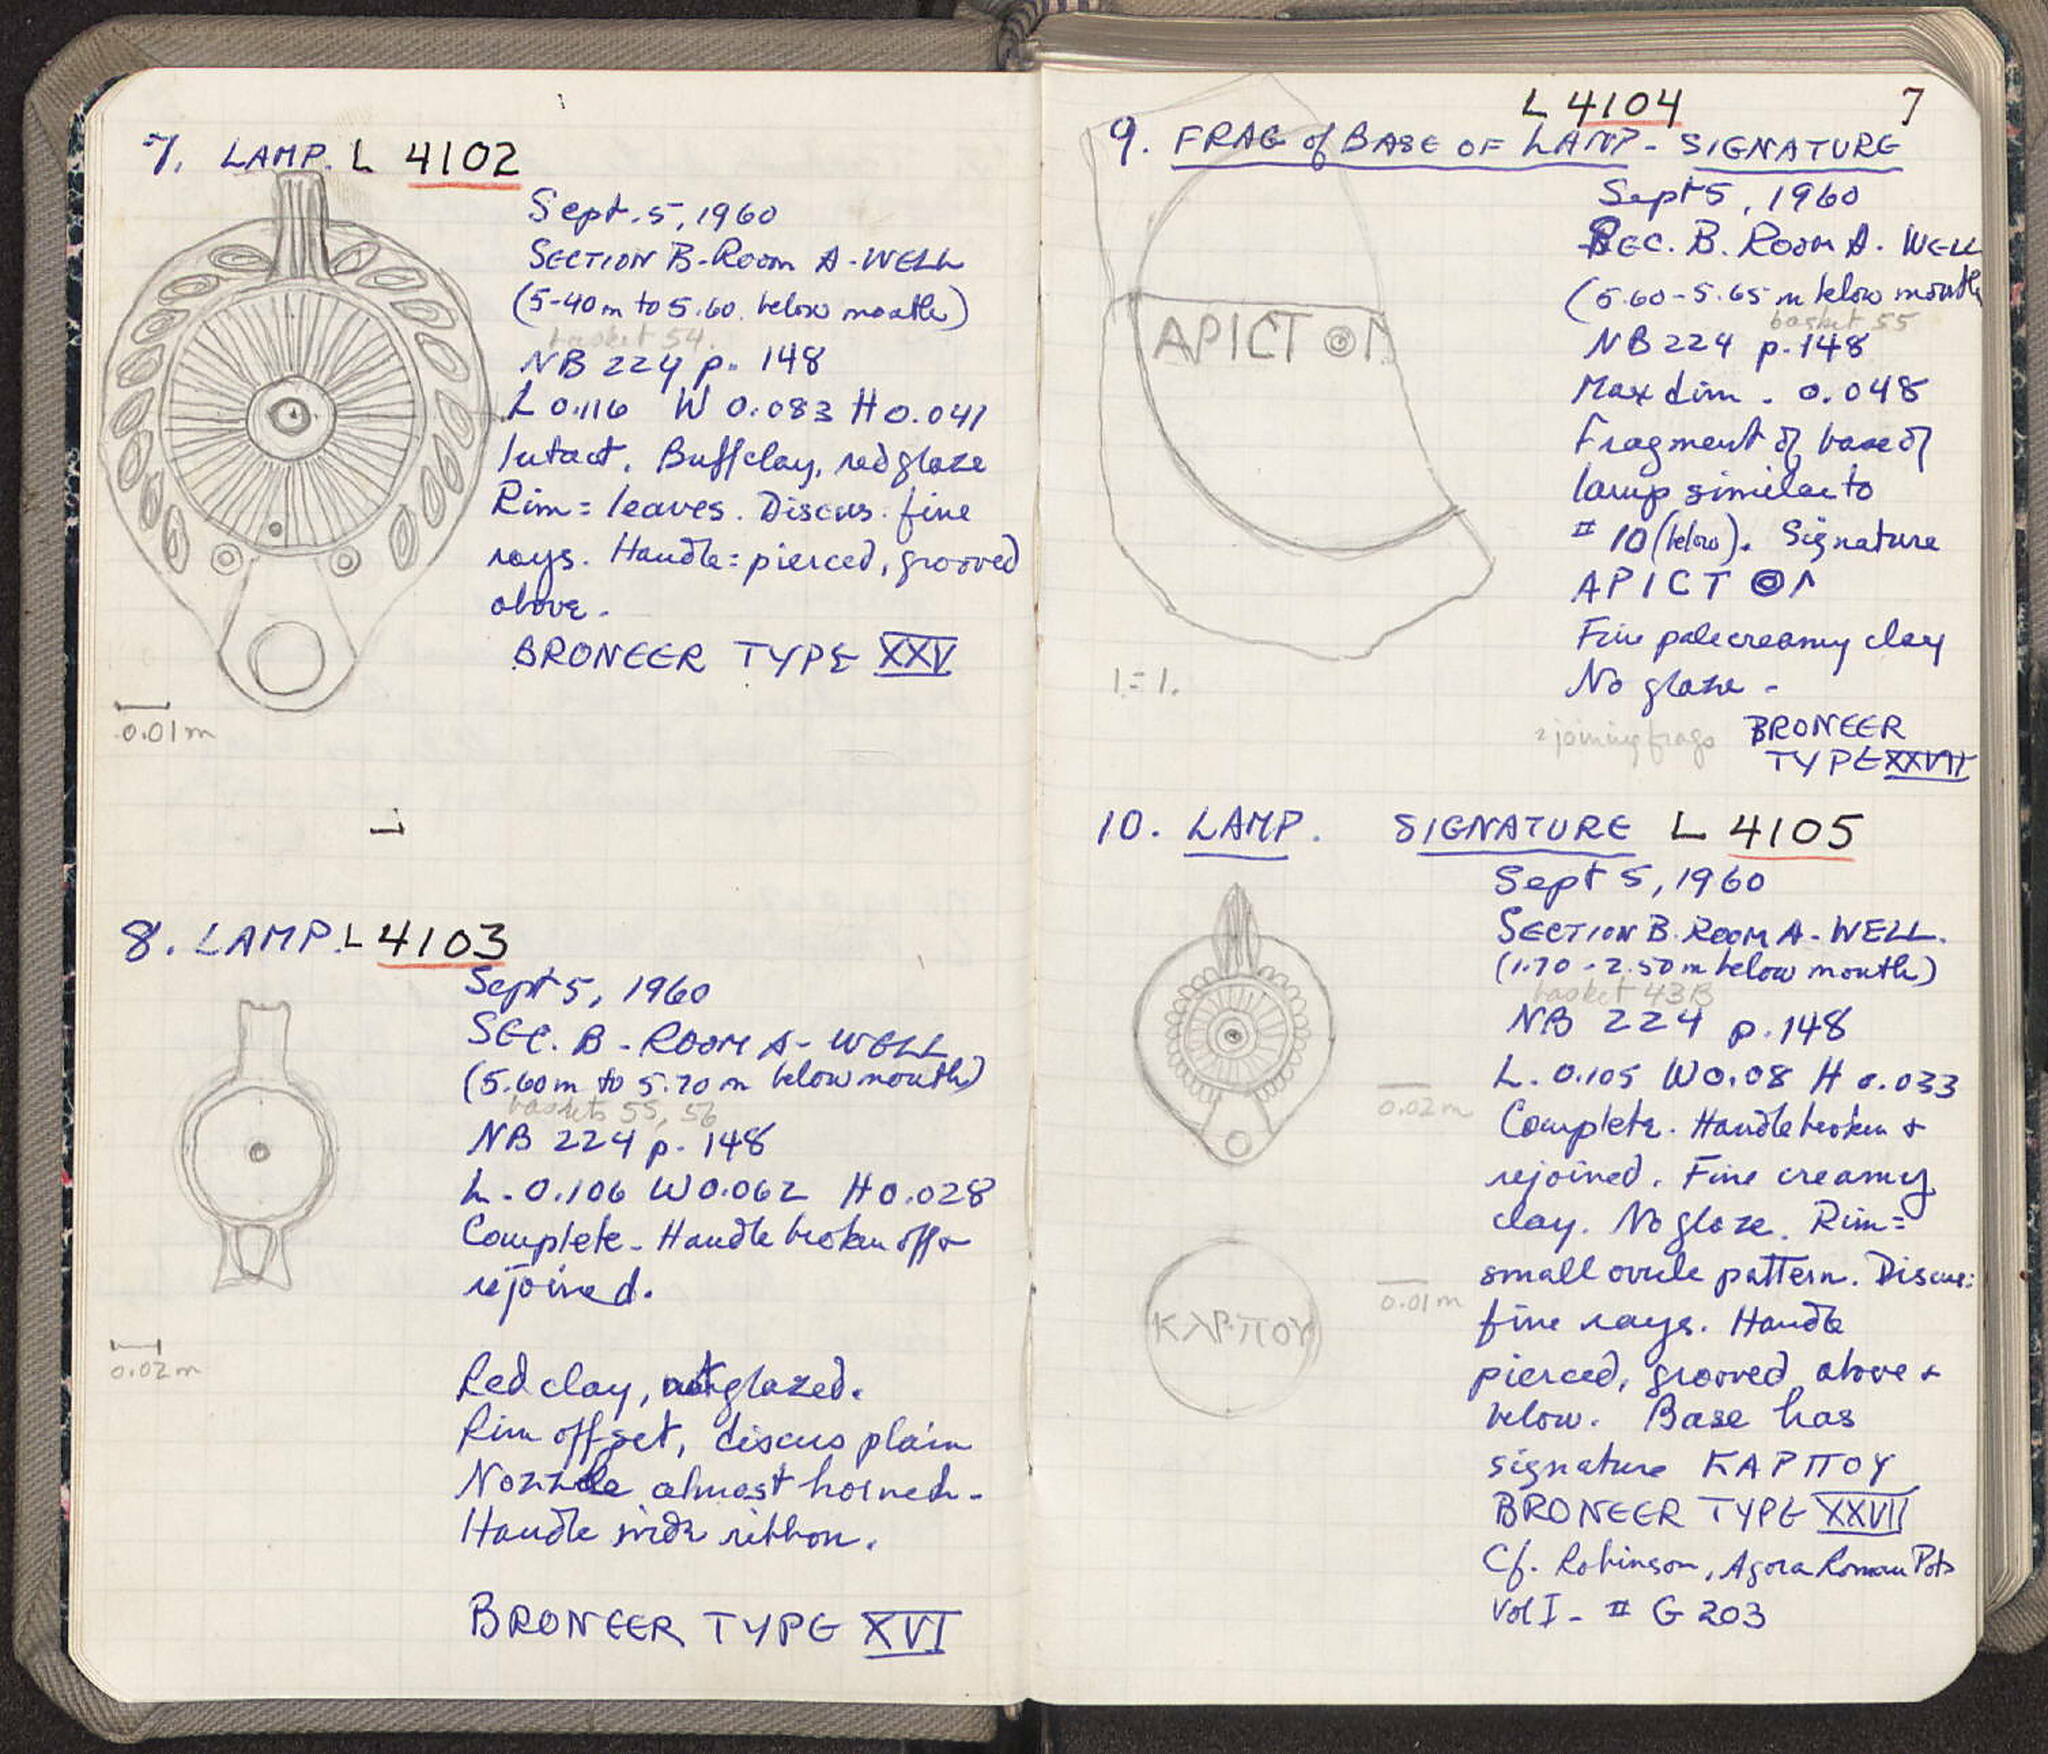 7. LAMP. L 4102
Sept. 5, 1960
SECTION B-ROOM A-WELL
(5-40m to 5.60. below mouth)
basket 54.
NB 224 p. 148
L 0.116 W 0.083 H 0.041
Intact. Buff clay, red glaze
Rim = leaves. Discus. fine
rays. Handle = pierced, grooved
above.
BRONEER TYPE XXV
0.01m
8. LAMP. L 4103
Sept 5, 1960
SEC. B - ROOM A - WELL
(5.60m to 5.70 m below mouth)
baskets 55, 56
NB 224 p. 148
L. 0.106 W 0.062 H 0.028
Complete - Handle broken off &
rejoined.
0.02m
Red clay, not glazed.
Rim offset, discus plain
Nozzle almost horned -
Handle wide ribbon.
BRONEER TYPE XVI
7
L 4104
9. FRAG of BASE OF LAMP - SIGNATURE
Sept 5, 1960
SEC. B. ROOM A. WELL
(5.60-5.65 m below mouth
basket 55
ΑΡΙCΤ
NB 224 p. 148
Max dim. 0.048
Fragment of base of
lamp similar to
# 10 (below). Signature
ΑΡΙCΤ
Fine pale creamy clay
No glaze -
1=1.
2 joining frags
BRONEER
TYPE XXVII
10. LAMP. SIGNATURE L 4105
Sept 5, 1960
SECTION B. ROOM A - WELL.
(1.70 - 2.50 m below mouth)
basket 43B
NB 224 p. 148
L. 0.105 W 0.08 H 0.033
0.02m
Complete. Handle broken &
rejoined. Fine creamy
clay. No glaze. Rim =
small ovule pattern. Discus:
0.01m
fine rays. Handle
ΚΑΡΠΟΥ
pierced, grooved above &
below. Base has
signature ΚΑΡΠΟΥ
BRONEER TYPE XXVII
Cf. Robinson, Agora Roman Pots
Vol I - # G 203